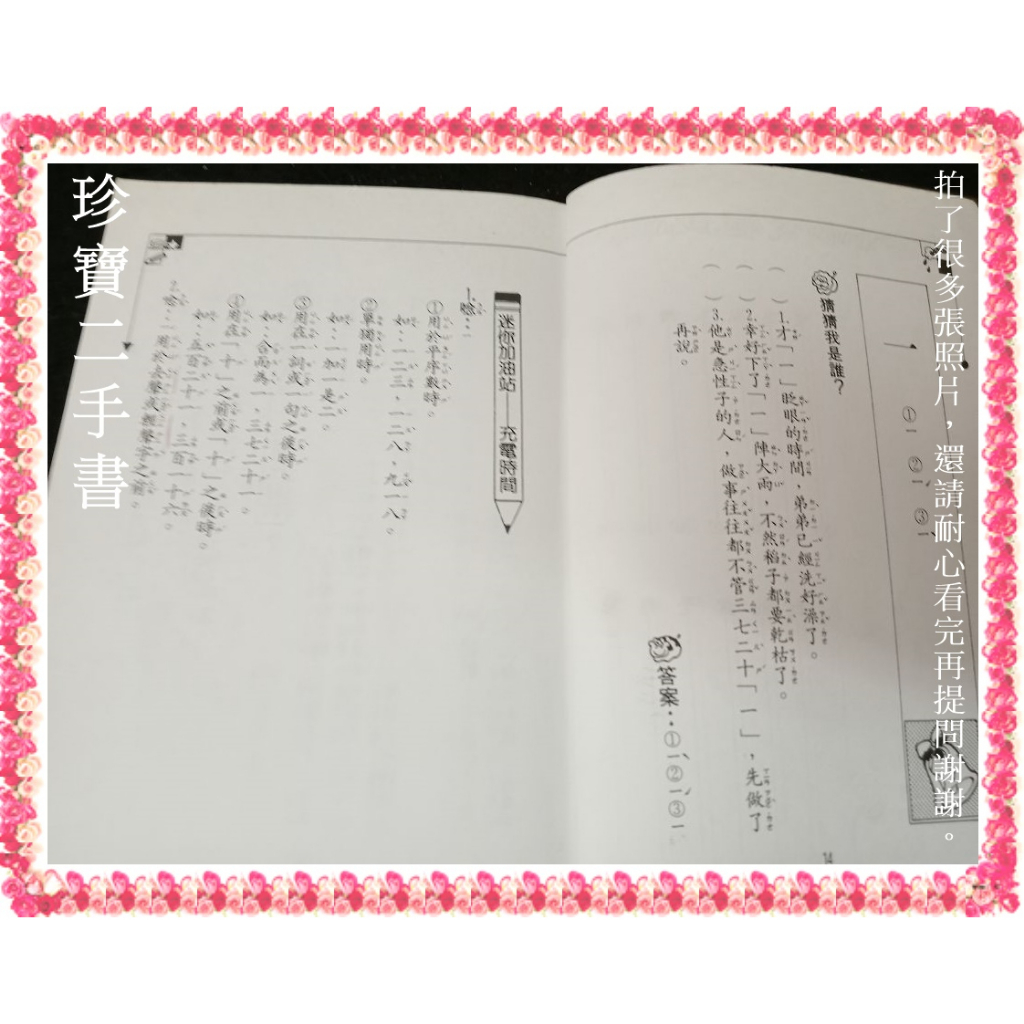 拍了很多張照片，還請耐心看完再提問謝謝。
珍寶二手書
一
①一
②一ˊ
③一ˋ
猜猜我是誰？
（ ）1.才「一」眨眼的時間，弟弟已經洗好澡了。
（ ）2.幸好下了「一」陣大雨，不然稻子都要乾枯了。
（ ）3.他是急性子的人，做事往往都不管三七二十「一」，先做了
再說。
答案：①一ˋ②一ˊ③一
14
迷你加油站——充電時間
1.唸：一
①用於平序數時。
如：一二三，一二八，九一八。
②單獨用時。
如：一加一是二。
③用在一詞或一句之後時。
如：合而為一，三七二十一。
④用在「十」之前或「十」之後時。
如：五百二十一，三百一十六。
2.唸：一ˊ用於去聲或輕聲字之前。